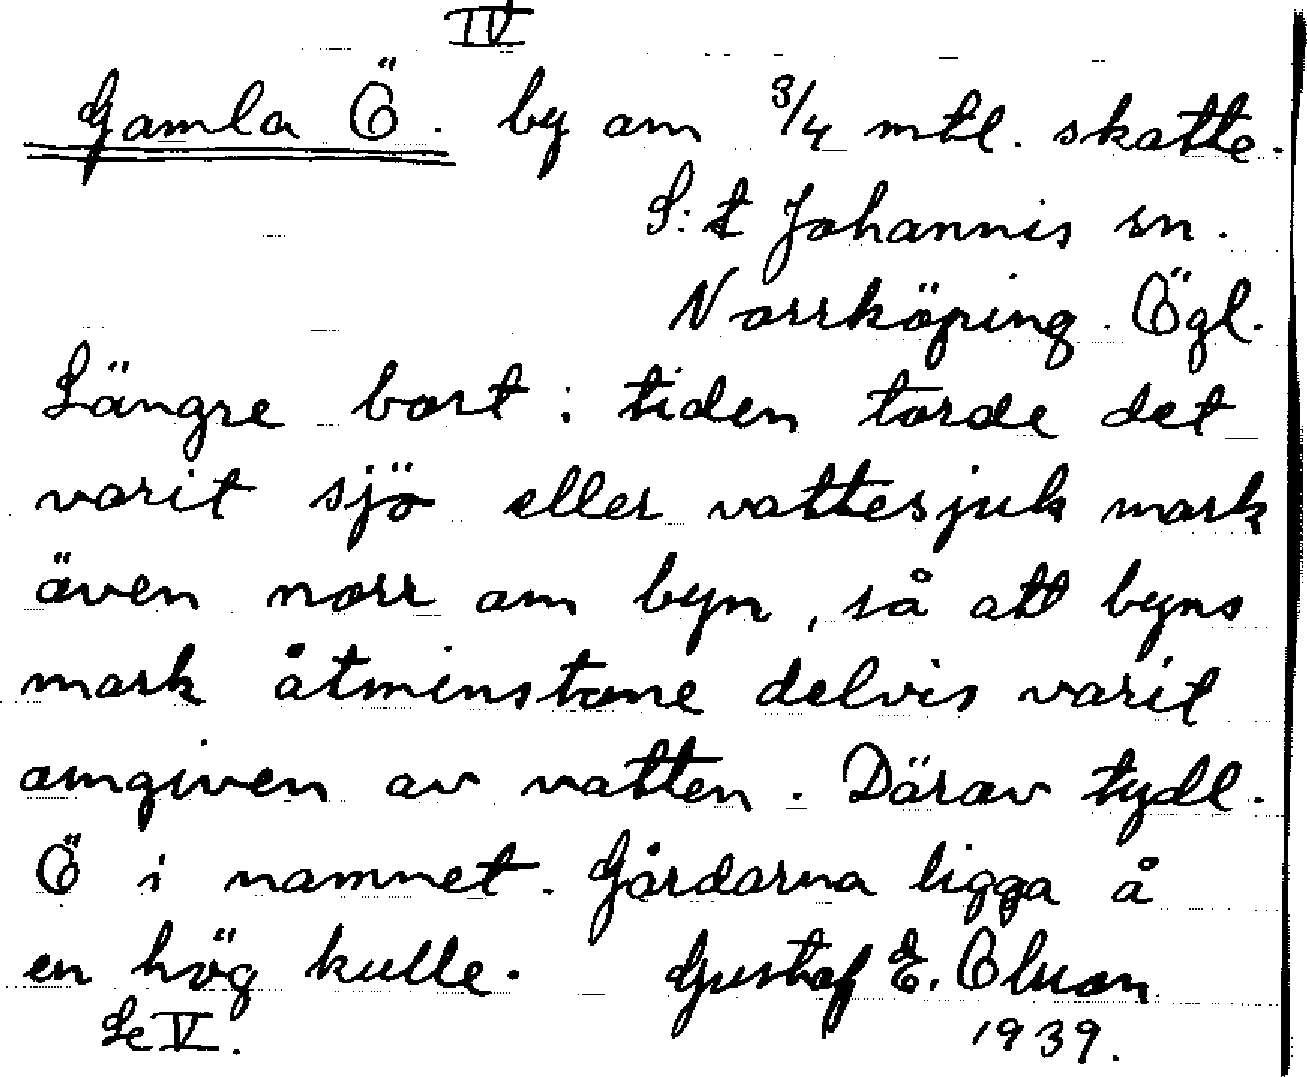 IV
Gamla Ö. by om 3/4 mtl. skatte.
S:t Johannis sn.
Norrköping. Ögl.
Längre bort i tiden torde det
varit sjö eller vattesjuk mark
även norr om byn, så att byns
mark åtminstone delvis varit
omgiven av vatten. Därav tydl.
Ö i namnet. Gårdarna ligga å
en hög kulle. Gustaf E.
Se V. 1939.